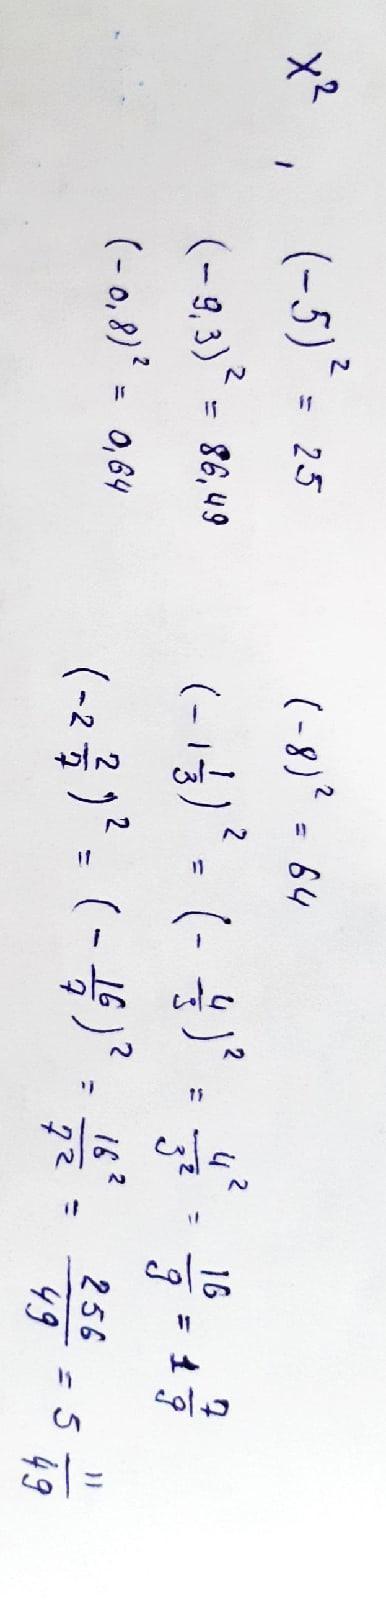 x² , (-5)² = 25 (-8)² = 64
(-9,3)² = 86,49 (-1 1/3)² = (- 4/3)² = 4²/3² = 16/9 = 1 7/9
(-0,8)² = 0,64 (-2 2/7)² = (- 16/7)² = 16²/7² = 256/49 = 5 11/49